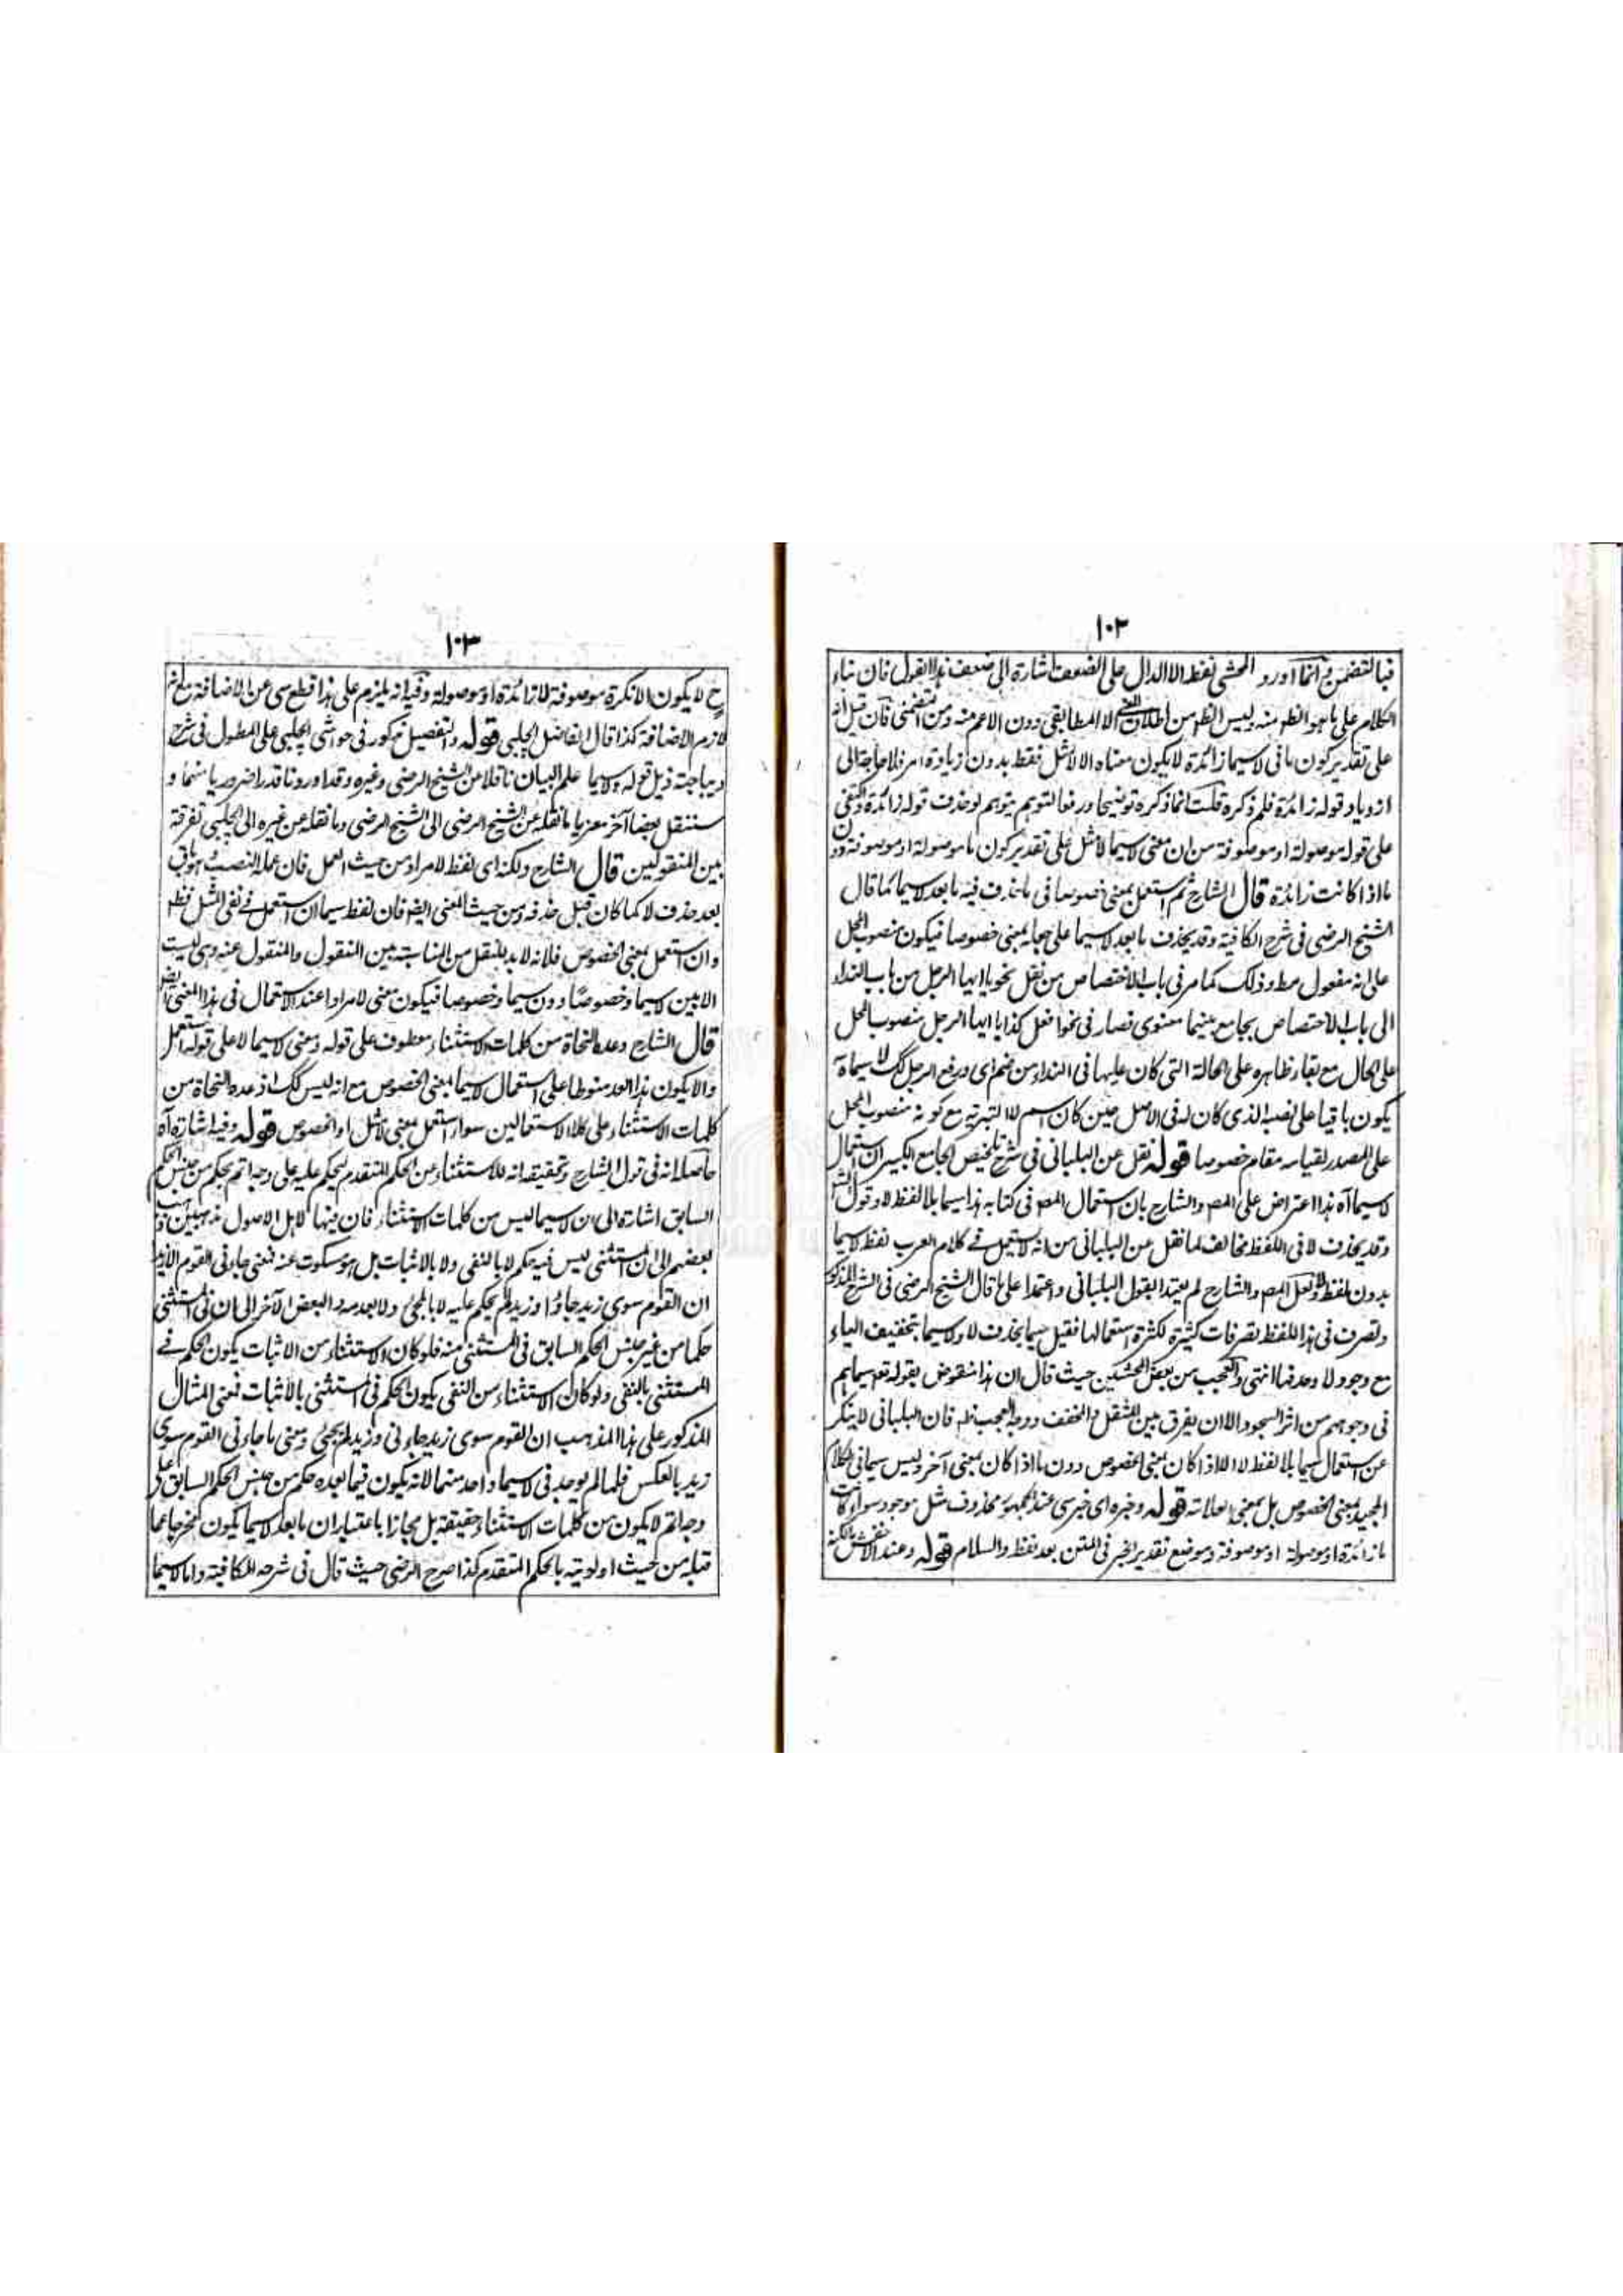 ١٠٢
فبالتضمن ثم انما اورد المحشى لفظ الا الدال على الضعف اشارة الى ضعف هذا القول فان بناء
الكلام على ما هو الظ منه ليس الظ من اطلاق الا المطابقى دون الاعم منه ومن التضمنى فان قيل انه
على تقدير كون ما فى لاسيما زائدة لا يكون معناه الا لا مثل فقط بدون زيادة امر فلا حاجة الى
ازدياد قوله زائدة فلم ذكره قلت انما ذكره توضيحا ودفعا لتوهم يتوهم لو حذف قوله زائدة واكتفى
على قوله موصولة او موصوفة من ان معنى لاسيما لا مثل على تقدير كون ما موصولة او موصوفة دون
ما اذا كانت زائدة قال الشارح ثم استعمل بمعنى خصوصا فى ما يحذف فيه ما بعد لاسيما كما قال
الشيخ الرضى فى شرح الكافية وقد يحذف ما بعد لاسيما على جعله بمعنى خصوصا فيكون منصوب المحل
على انه مفعول مط وذلك كما مر فى باب الاختصاص من نقل نحو يا ايها الرجل من باب النداء
الى باب الاختصاص بجامع بينهما معنوى فصار فى نحو انا افعل كذا يا ايها الرجل منصوب المحل
على الحال مع بقاء ظاهره على الحالة التى كان عليها فى النداء من ضم اى ورفع الرجل كك لاسيما آه
يكون باقيا على نصبه الذى كان له فى الاصل حين كان اسم لا التبرئة مع كونه منصوب المحل
على المصدر لقيامه مقام خصوصا قوله نقل عن البلبانى فى شرح تلخيص الجامع الكبير ان استعمال
لاسيما آه هذا اعتراض على المص والشارح بان استعمال المص فى كتابه هذا سيما بلا لفظ لا وقول الش
وقد يحذف لا فى اللفظ مخالف لما نقل عن البلبانى من انه لا يستعمل فى كلام العرب لفظ لاسيما
بدون لفظ لا ولعل المص والشارح لم يعتدا بقول البلبانى واعتمدا على ما قال الشيخ الرضى فى الشرح المذكور
وتصرف فى هذا اللفظ تصرفات كثيرة لكثرة استعمالها فقيل سيما بحذف لا ولاسيما بتخفيف الياء
مع وجود لا وحذفها انتهى والعجب من بعض المحشين حيث قال ان هذا منقوض بقوله تع سيماهم
فى وجوههم من اثر السجود الا ان يفرق بين المثقل والمخفف ووجه العجب ظ فان البلبانى لا ينكر
عن استعمال سيما بلا لفظ لا الا اذا كان بمعنى الخصوص دون ما اذا كان بمعنى آخر وليس سيما فى الكلام
المجيد بمعنى الخصوص بل بمعنى العلامة قوله وخبره اى خبر سى عند الجمهور محذوف مثل موجود سواء كانت
ما زائدة او موصولة او موصوفة وموضع تقدير الخبر فى المتن بعد لفظ والسلام قوله وعند الاخفش
١٠٣
ح لا يكون الا نكرة موصوفة لا زائدة او موصولة وفيه انه يلزم على هذا قطع سى عن الاضافة مع انه
لازم الاضافة كذا قال الفاضل الچلپى قوله والتفصيل مذكور فى حواشى الچلپى على المطول فى شرح
ديباجته ذيل قوله ولاسيما علم البيان ناقلا عن الشيخ الرضى وغيره وقد اوردنا قدرا ضروريا منهما و
سننقل بعضا آخر معزيا ما نقله عن الشيخ الرضى الى الشيخ الرضى وما نقله عن غيره الى الچلپى تفرقة
بين المنقولين قال الشارح ولكنه اى لفظ لا مراد من حيث العمل فان عمله النصب هو باق
بعد حذف لا كما كان قبل حذفه ومن حيث المعنى ايضا فان لفظ سيما ان استعمل فى نفى المثل فظ
وان استعمل بمعنى الخصوص فلانه لا بد للنقل من المناسبة بين المنقول والمنقول عنه وهى ليست
الا بين لاسيما وخصوصا دون سيما وخصوصا فيكون معنى لا مرادا عند الاستعمال فى هذا المعنى ايضا
قال الشارح وعده النحاة من كلمات الاستثناء معطوف على قوله ومعنى لاسيما لا على قوله استعمل
والا يكون هذا العد منوطا على استعمال لاسيما بمعنى الخصوص مع انه ليس كك اذ عده النحاة من
كلمات الاستثناء على كلا الاستعمالين سواء استعمل بمعنى لا مثل او الخصوص قوله وفيه اشارة آه
حاصله انه فى قول الشارح وتحقيقه انه للاستثناء عن الحكم المتقدم ليحكم عليه على وجه اتم بحكم من جنس الحكم
السابق اشارة الى ان لاسيما ليس من كلمات الاستثناء فان فيها لاهل الاصول مذهبين ذهب
بعضهم الى ان المستثنى ليس فيه حكم لا بالنفى ولا بالاثبات بل هو مسكوت عنه فمعنى جاءنى القوم الا زيدا
ان القوم سوى زيد جاؤا وزيد لم يحكم عليه لا بالمجئ ولا بعدمه والبعض الآخر الى ان فى المستثنى
حكما من غير جنس الحكم السابق فى المستثنى منه فلو كان الاستثناء من الاثبات يكون الحكم فى
المستثنى بالنفى ولو كان الاستثناء من النفى يكون الحكم فى المستثنى بالاثبات فمعنى المثال
المذكور على هذا المذهب ان القوم سوى زيد جاءنى وزيد لم يجئ ومعنى ما جاءنى القوم سوى
زيد بالعكس فلما لم يوجد فى لاسيما واحد منهما لانه يكون فيما بعده حكم من جنس الحكم السابق على
وجه اتم لا يكون من كلمات الاستثناء حقيقة بل مجازا باعتبار ان ما بعد لاسيما يكون مخرجا عما
قبله من حيث اولويته بالحكم المتقدم كذا صرح الرضى حيث قال فى شرحه للكافية واما لاسيما